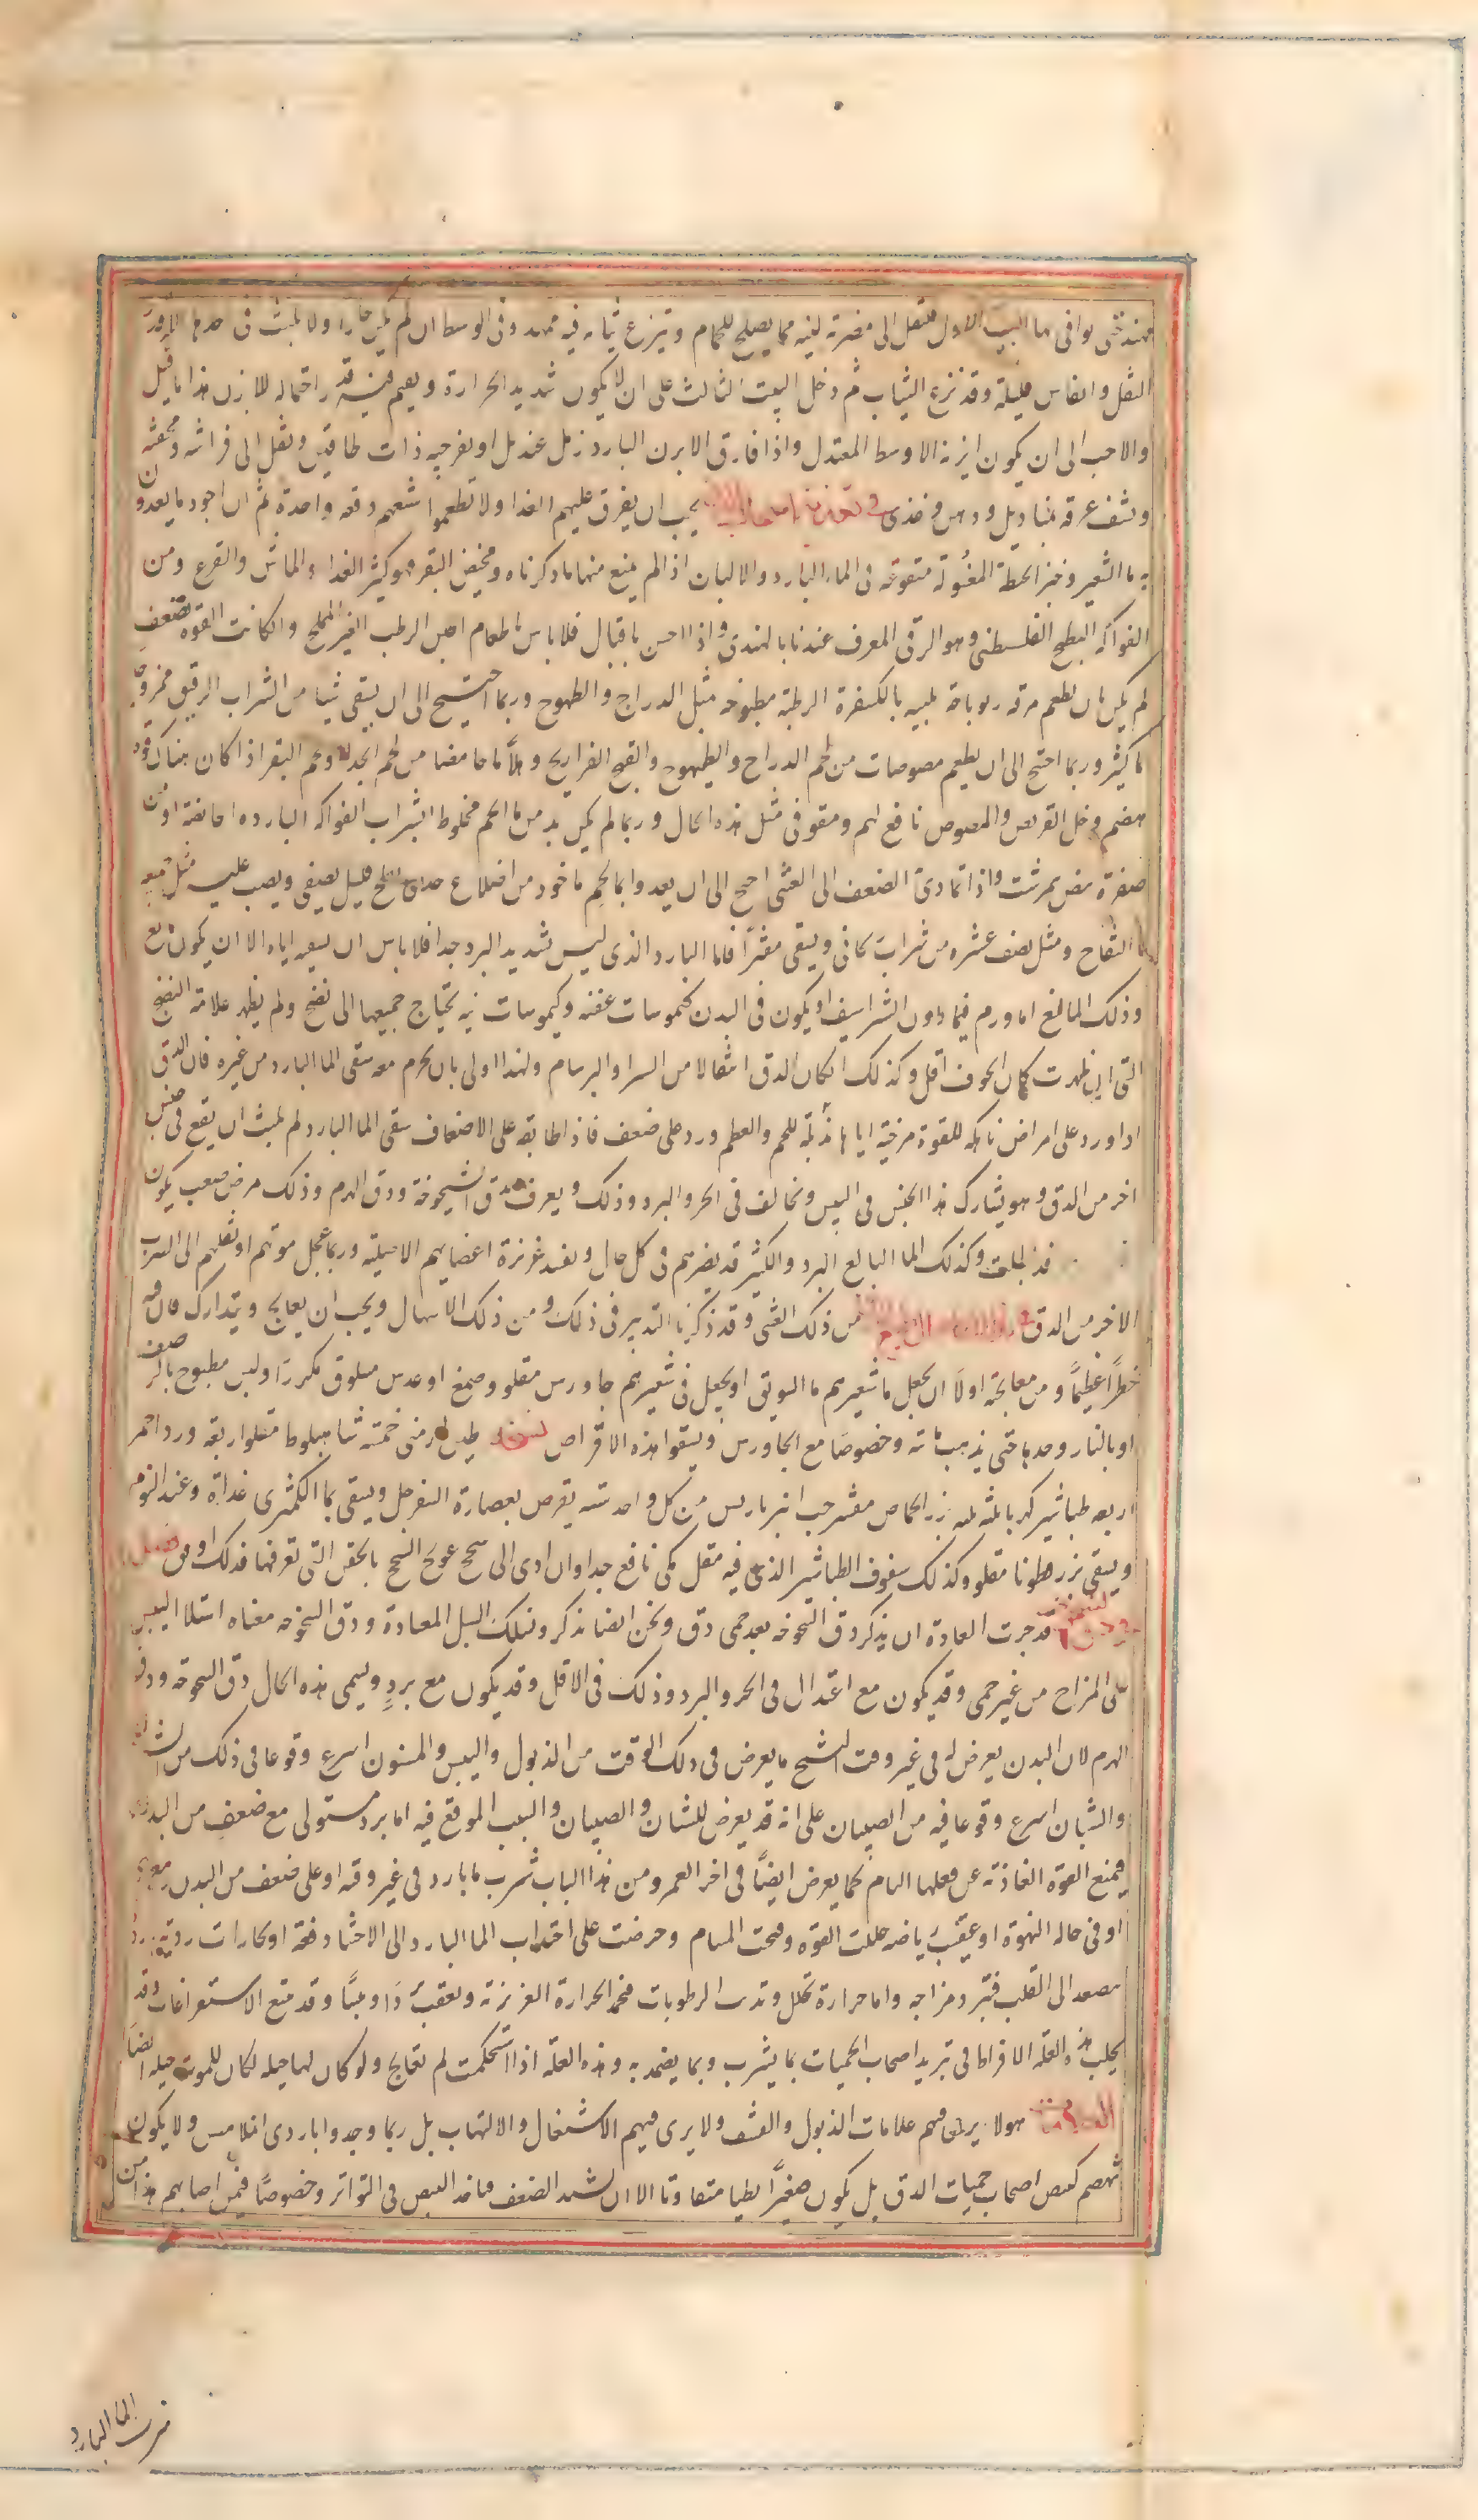 مهند حتى يوافى بها البيت الاول فينقل الى مضربة لينه مما يصلح للحمام وينزع ثيابه فيه مهد وفى الوسط ان لم يكن حارا ولا يلبث فى
النقل وانفاس قليلة وقد نزع الثياب ثم دخل البيت الثالث على ان لا يكون شديد الحرارة ويقيم فيه قدر احتماله للابزن هذا ما قيل
والاحب الى ان يكون ابزنه الاوسط المعتدل واذا فارق الابزن البارد زمل عنديل او بفرجيه ذات طاقين ونقل الى فراشه ومحفته
ونشف عرقه بمناديل ودهن وغذى فى تغذية اصحاب الدق يجب ان يفرق عليهم الغذا ولا تطعموا شبعهم دفعه واحدة ثم ان اجود ما يغذون
به ما الشعير وخبز الحنطة المغسولة منقوعه فى الماء البارد والالبان اذا لم يمنع منها ما ذكرناه ومخيض البقر فهو كثير الغذاء والماش والقرع ومن
الفواكه البطيخ الفلسطينى وهو الرقى المعرف عندنا بالهندى واذا احس باقبال فلا باس باطعام الجبن الرطب الغير المملح وان كانت القوه تضعف
لم يكن بان يطعم مرقه بالكسفرة الرطبة مطبوخه مثل الدراج والطهوج وربما احتيج الى ان يسقى شيا من الشراب الرقيق ممزوجا
ما كثير وربما احتج الى ان يطعم مصوصات من لحم الدراج والطيهوج والقبج الفراريج وهلاما حامضا من لحم الجدا ولحم البقر اذا كان هناك قوه
هضم وخل القريص والمصوص نافع لهم ومقو فى مثل هذه الحال وربما لم يكن بد من ما اللحم مخلوطا بشراب الفواكه البارده الحامضة او من
صفرة بيض نمرشت واذا تمادى الضعف الى الغشى احتج الى ان يغدوا بما لحم ماخوذ من اضلاع ملح قليل يصفى ويصب عليه مثل ربعه
ما التفاح ومثل نصف عشره من شراب ريحانى ويسقى مفترا فاما البارد الذى ليس شديد البرد جدا فلا باس ان يسقيه اياه الا ان يكون مانع
وذلك المانع اما ورم فيما دون الشراسيف او يكون فى البدن كيموسات عفنه وكيموسات نيه يحتاج جميعها الى نضج ولم يظهر علامة النضج
التى ان ظهرت كان الخوف اقل وكذلك ان كان الدق انتقالا من السرا والبرسام ولهذا اولى بان يحرم معه سقى الما البارد من غيره فان الدق
اذا ورد على امراض ناهكه للقوة مرخية اياها مذبلة للحم والعظم ورد على ضعف فاذا طابقه على الاضعاف سقى الما البارد لم يلبث ان يقع فى جنس
اخر من الدق وهو يشارك هذا الجنس فى اليبس ويخالف فى الحر والبرد وذلك ويعرف بدق الشيخوخة ودق الهرم وذلك مرض صعب يكون
وكذلك الما البالغ البرد والكثير قد يضرهم فى كل حال ويفسد غريزة اعضايهم الاصيلة وربما عجل موتهم او نقلهم الى الضرب
الاخر من الدق من ذلك الغشى وقد ذكرنا التدبير فى ذلك ومن ذلك الاسهال ويجب ان يعالج ويتدارك فان فيه
خطرا عظيما ومن معالجته اولا ان يجعل ما شعيرهم ما السويق او يجعل فى شعيرهم جاورس مقلو وصمغ او عدس مسلوق مكررا ولبن مطبوخ بالرضف
او بالنار وحدها حتى يذهب مائته وخصوصا مع الجاورس ويسقوا هذه الاقراص نسخه طين ارمنى خمسة شاهبلوط مقلو اربعه ورد احمر
اربعه طباشير كهربا ثلثه ثلثه بزر الحماض مقشر حب انبرباريس من كل واحد سته يقرص بعصارة السفرجل ويسقى بما الكمثرى غداة وعند النوم
ويسقى بزر قطونا مقلو وكذلك سفوف الطباشير الذى فيه مقل مكى نافع جدا وان ادى الى سحج عولج السحج بالحقن التى تعرفها فذلك اوفق فصل
فى دق الشيخوخة قد جرت العادة ان يذكر دق الشيخوخه بعد حمى دق ونحن ايضا نذكر ونسلك السبل المعتادة ودق الشيخوخه معناه استلا اليبس
على المزاج من غير حمى وقد يكون مع اعتدال فى الحر والبرد وذلك فى الاقل وقد يكون مع برد ويسمى هذه الحال دق الشيخوخة ودق
الهرم لان البدن يعرض له فى غير وقت الشيخ ما يعرض فى ذلك الوقت من الذبول واليبس والمسنون اسرع وقوعا فى ذلك من الشبان
والشبان اسرع وقوعا فيه من الصبيان على انه قد يعرض للشبان والصبيان والسبب الموقع فيه اما برد مستولى مع ضعف من البدن
فيمنع القوة الغاذية عن فعلها التام كما يعرض ايضا فى اخر العمر ومن هذا الباب شرب ما بارد فى غير وقته او على ضعف من البدن
او فى حاله النهوة او عقيب رياضه حللت القوه وفتحت المسام وحرضت على اجتذاب الما البارد الى الاحشا دفعه او بخارات ردية
تصعد الى القلب فتبرد مزاجه واما حرارة تحلل وتذيب الرطوبات فتخمد الحرارة الغريزية وقد تتبع الاستفراغات وقد
يجلب هذه العله الافراط فى تبريد اصحاب الحميات بما يشرب وبما يضمد به وهذه العله اذا استحكمت لم تعالج ولو كان لها حيله لكان للموت حيله ايضا
العلامات هولا يرى فيهم علامات الذبول والقشف ولا يرى فيهم الاشتعال والالتهاب بل ربما وجدوا باردى الملامس ولا يكون
نبضهم كنبض اصحاب حميات الدق بل يكون صغيرا بطيا متفاوتا الا ان يشتد الضعف فياخذ النبض فى التواتر وخصوصا فيمن اصابهم هذا من
شرب الما البارد